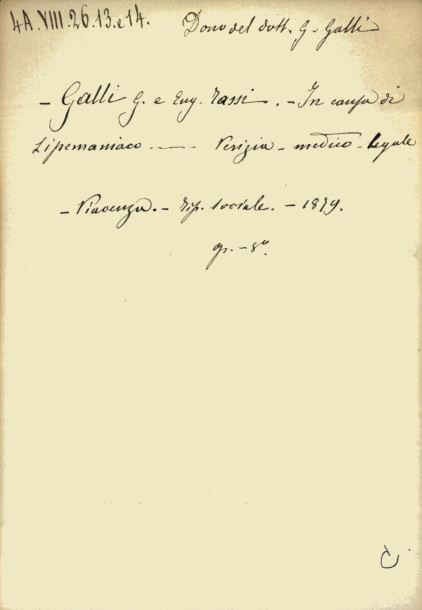 4A.VIII.26.13.e 14. Dono del dott. G. Galli
- Galli G. e Eug. Tassi. - In causa di
Lipemaniaco. — Perizia - medico - legale
- Piacenza. - Tip. sociale. - 1879.
gr. - 8º.
C